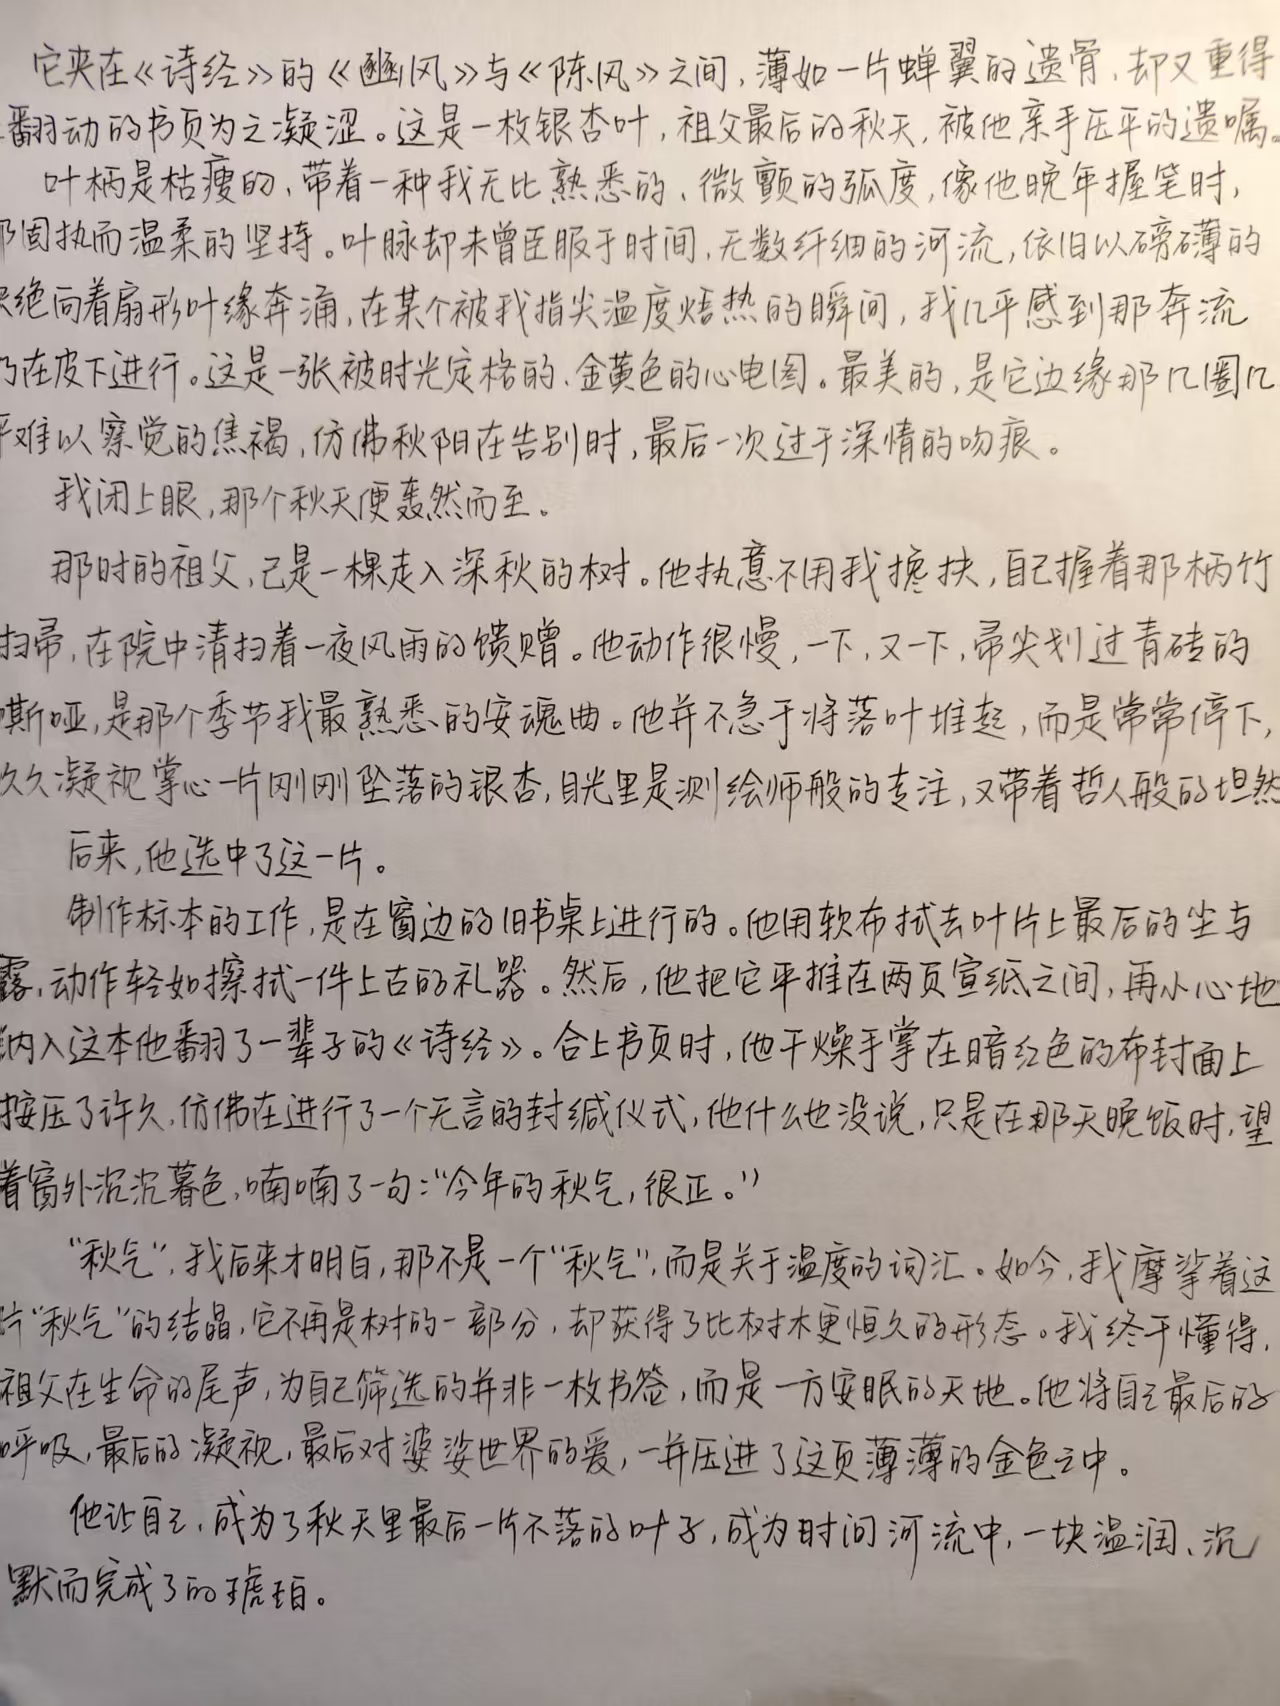 它夹在《诗经》的《豳风》与《陈风》之间，薄如一片蝉翼的遗骨，却又重得
翻动的书页为之凝涩。这是一枚银杏叶，祖父最后的秋天，被他亲手压平的遗嘱。
叶柄是枯瘦的、带着一种我无比熟悉的、微颤的弧度，像他晚年握笔时，
那固执而温柔的坚持。叶脉却未曾臣服于时间，无数纤细的河流，依旧以磅礴的
决绝向着扇形叶缘奔涌，在某个被我指尖温度焐热的瞬间，我几乎感到那奔流
仍在皮下进行。这是一张被时光定格的、金黄色的心电图。最美的，是它边缘那几圈几
乎难以察觉的焦褐，仿佛秋阳在告别时，最后一次过于深情的吻痕。
我闭上眼，那个秋天便轰然而至。
那时的祖父，已是一棵走入深秋的树。他执意不用我搀扶，自己握着那柄竹
扫帚，在院中清扫着一夜风雨的馈赠。他动作很慢，一下，又一下，帚尖划过青砖的
嘶哑，是那个季节我最熟悉的安魂曲。他并不急于将落叶堆起，而是常常停下，
久久凝视掌心一片刚刚坠落的银杏，目光里是测绘师般的专注，又带着哲人般的坦然
后来，他选中了这一片。
制作标本的工作，是在窗边的旧书桌上进行的。他用软布拭去叶片上最后的尘与
露，动作轻如擦拭一件上古的礼器。然后，他把它平推在两页宣纸之间，再小心地
纳入这本他翻了一辈子的《诗经》。合上书页时，他干燥手掌在暗红色的布封面上
按压了许久，仿佛在进行了一个无言的封缄仪式，他什么也没说，只是在那天晚饭时，望
着窗外沉沉暮色，喃喃了一句：“今年的秋气，很正。”
“秋气”，我后来才明白，那不是一个“秋气”，而是关于温度的词汇。如今，我摩挲着这
片“秋气”的结晶，它不再是树的一部分，却获得了比树木更恒久的形态。我终于懂得，
祖父在生命的尾声，为自己筛选的并非一枚书签，而是一方安眠的天地。他将自己最后的
呼吸，最后的凝视，最后对婆娑世界的爱，一并压进了这页薄薄的金色之中。
他让自己，成为了秋天里最后一片不落的叶子，成为时间河流中，一块温润、沉
默而完成了的琥珀。